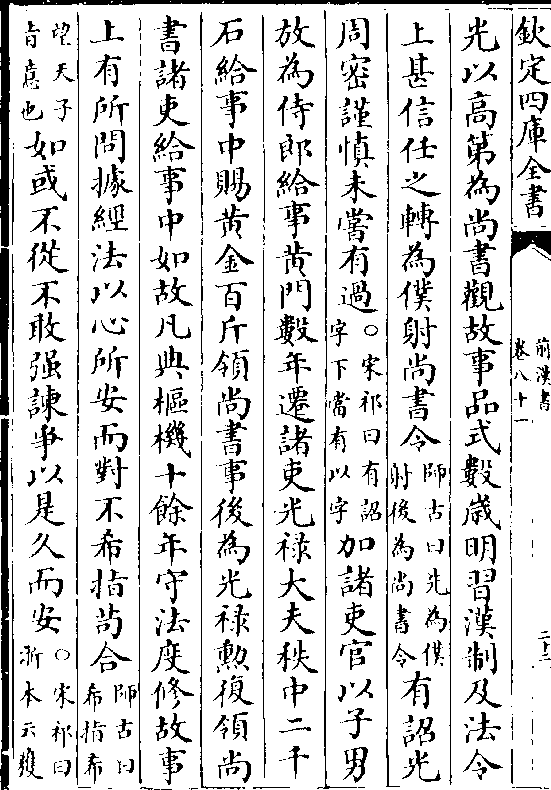 欽定四庫全書
前漢書
卷八十一
二十二
光以高第為尚書觀故事品式數歲明習漢制及法令
上甚信任之轉為僕射尚書令師古曰先為僕射後為尚書令有詔光
周密謹慎未嘗有過○宋祁曰有詔字下當有以字加諸吏官以子男
放為侍郎給事黄門數年遷諸吏光禄大夫秩中二千
石給事中賜黄金百斤領尚書事後為光禄勲復領尚
書諸吏給事中如故凡典樞機十餘年守法度修故事
上有所問據經法以心所安而對不希指苟合師古曰希指希
望天子㫖意也如或不從不敢强諫爭以是久而安○宋祁曰浙本云獲